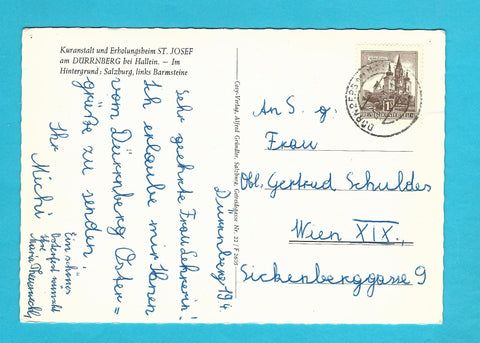 Kuranstalt und Erholungsheim ST. JOSEF
am DÜRRNBERG bei Hallein. — Im
Hintergrund: Salzburg, links Barmsteine
Dürrnberg 19.4.
Sehr geehrte Frau Lehrerin!
Ich erlaube mir Ihnen
vom Dürrnberg Oster=
grüße zu senden!
Ihr
Michi
Ein schönes
Osterfest wünscht
Ihre
Maria
Cosy-Verlag, Alfred Gründler, Salzburg,
An S. g.
Frau
Obl. Gertrud Schuldes
Wien XIX.,
Sickenberggasse 9